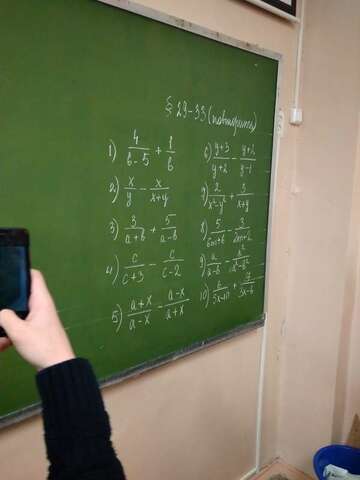 § 29-33 (повторить)
1) 4/(b-5) + 1/b
2) x/y - x/(x+y)
3) 3/(a+b) + 5/(a-b)
4) c/(c+3) - c/(c-2)
5) (a+x)/(a-x) - (a-x)/(a+x)
6) (y+3)/(y+2) - (y+2)/(y-1)
7) 2/(x²-y²) + 3/(x+y)
8) 5/(6m+6) - 3/(2m+2)
9) a/(a-b) - a²/(a²-b²)
10)